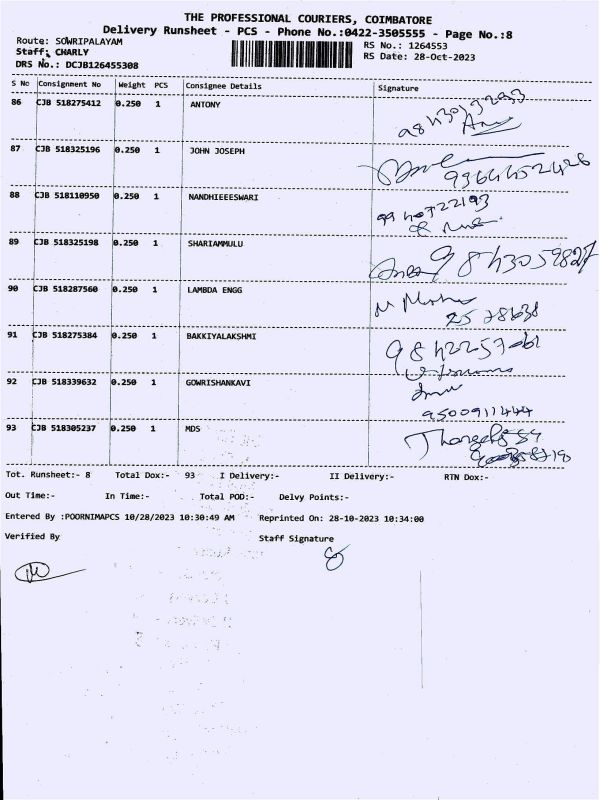 THE PROFESSIONAL COURIERS, COIMBATORE
Delivery Runsheet - PCS - Phone No.:0422-3505555 - Page No.:8
Route: SOWRIPALAYAM
RS No.: 1264553
Staff: CHARLY
RS Date: 28-Oct-2023
DRS No.: DCJB126455308
S No Consignment No Weight PCS Consignee Details Signature
86 CJB 518275412 0.250 1 ANTONY
87 CJB 518325196 0.250 1 JOHN JOSEPH
88 CJB 518110950 0.250 1 NANDHIEEESWARI
89 CJB 518325198 0.250 1 SHARIAMMULU
9843059827
90 CJB 518287560 0.250 1 LAMBDA ENGG
91 CJB 518275384 0.250 1 BAKKIYALAKSHMI
92 CJB 518339632 0.250 1 GOWRISHANKAVI
9500911444
93 CJB 518305237 0.250 1 MDS
Tot. Runsheet:- 8 Total Dox:- 93 I Delivery:- II Delivery:- RTN Dox:-
Out Time:- In Time:- Total POD:- Delvy Points:-
Entered By :POORNIMAPCS 10/28/2023 10:30:49 AM Reprinted On: 28-10-2023 10:34:00
Verified By Staff Signature